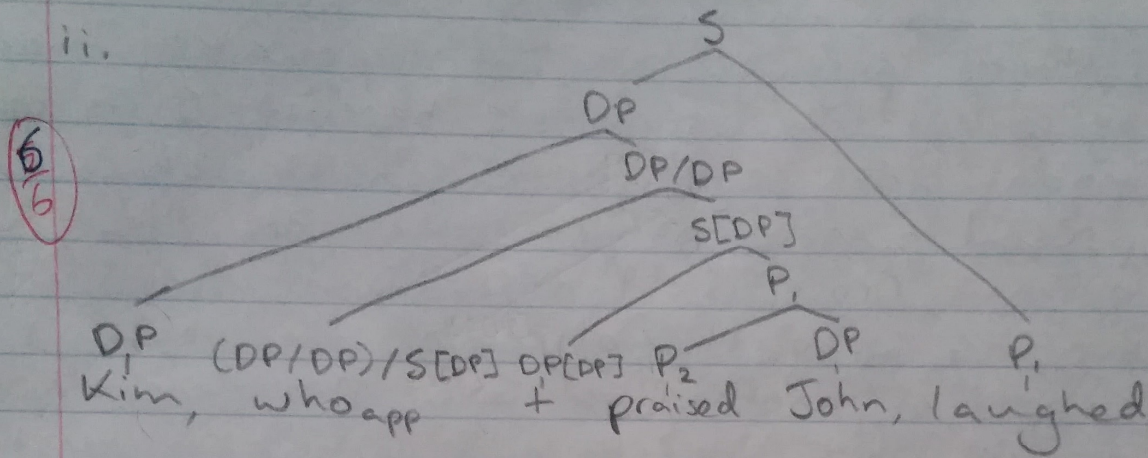 S
ii.
DP
6
DP/DP
6
S[DP]
P₁
DP (DP/DP)/S[DP] DP[DP] P₂ DP P₁
Kim, who app t praised John, laughed